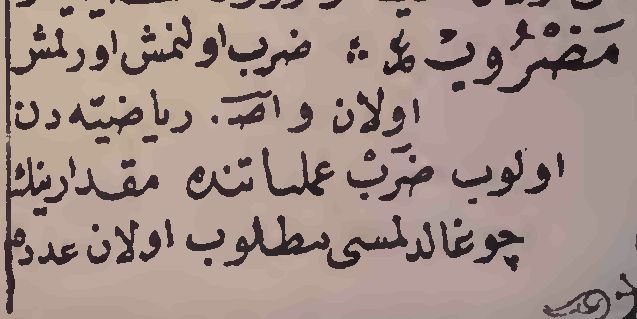 مَضْرُوبْ ط :: ضرب اولنمش اورلمش
اولان و اصـ. رياضيه دن
اولوب ضَرَبْ عملياتنده مقدارينك
چوغالدلمسى مطلوب اولان عدده